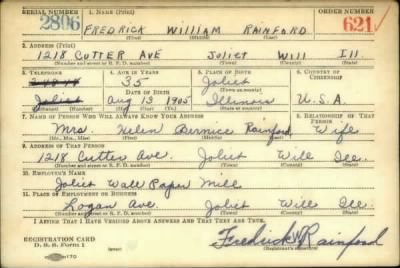 SERIAL NUMBER 1. NAME (Print) ORDER NUMBER
2806 FREDRICK WILLIAM RAINFORD 621
(First) (Middle) (Last)
2. ADDRESS (Print)
1218 CUTTER AVE JOLIET WILL ILL
(Number and street or R. F. D. number) (Town) (County) (State)
3. TELEPHONE 4. AGE IN YEARS 5. PLACE OF BIRTH 6. COUNTRY OF CITIZENSHIP
35 Joliet
DATE OF BIRTH (Town or county)
Joliet Aug 13 1905 Illinois U.S.A.
(Exchange) (Number) (Mo.) (Day) (Yr.) (State or country)
7. NAME OF PERSON WHO WILL ALWAYS KNOW YOUR ADDRESS 8. RELATIONSHIP OF THAT PERSON
Mrs. Helen Bernice Rainford Wife
(Mr., Mrs., Miss) (First) (Middle) (Last)
9. ADDRESS OF THAT PERSON
1218 Cutter Ave. Joliet Will Ill.
(Number and street or R. F. D. number) (Town) (County) (State)
10. EMPLOYER'S NAME
Joliet Wall Paper Mill
11. PLACE OF EMPLOYMENT OR BUSINESS
Logan Ave. Joliet Will Ill.
(Number and street or R. F. D. number) (Town) (County) (State)
I AFFIRM THAT I HAVE VERIFIED ABOVE ANSWERS AND THAT THEY ARE TRUE.
REGISTRATION CARD
D. S. S. Form 1 Fredrick W Rainford
(Registrant's signature)